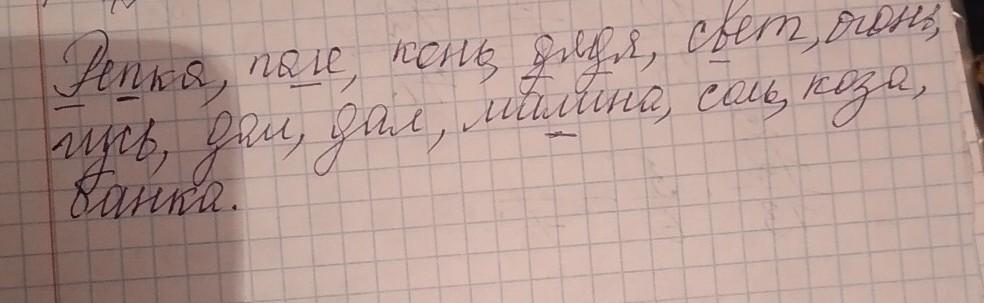 Репка, поле, конь, дядя, свет, огонь,
гусь, дом, дал, малина, соль, коза,
банка.